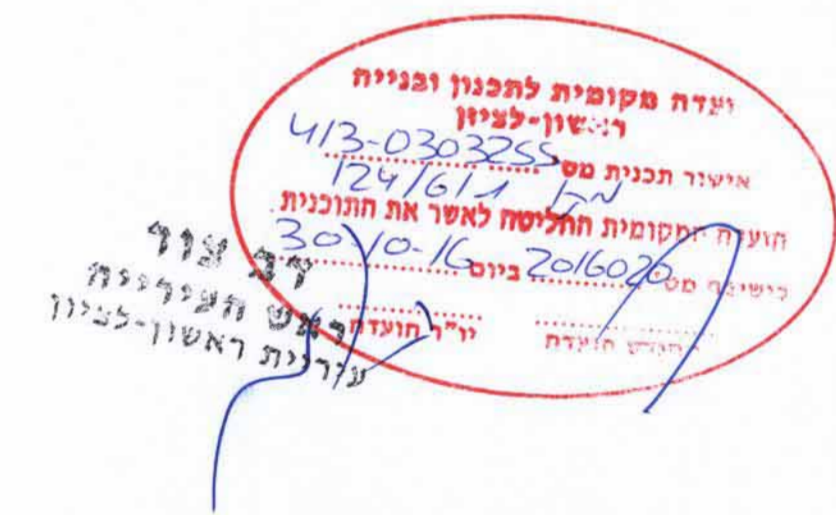 ועדה מקומית לתכנון ובנייה
ראשון-לציון
אישור תכנית מס 413-0303255
124/6/1
הועדה המקומית החליטה לאשר את התוכנית
בישיבה מס 2016020 ביום 30-10-16
יו"ר הועדה
דב צור
ראש העירייה
עיריית ראשון-לציון